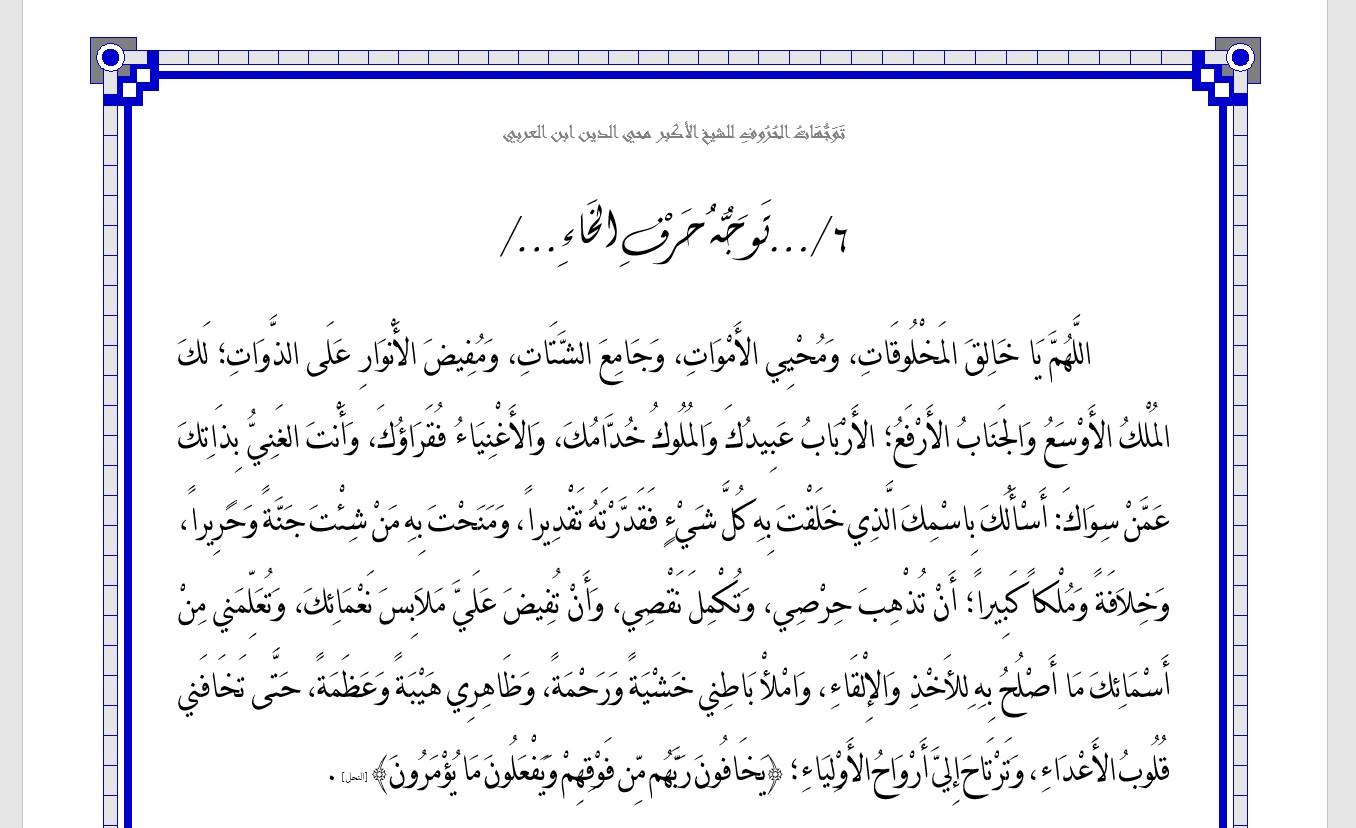 تَوَجُّهَاتُ الحُرُوفِ للشيخ الأكبر محي الدين ابن العربي
٦/...تَوَجُّهُ حَرْفِ الخَاءِ.../
اللَّهُمَّ يَا خَالِقَ المَخْلُوقَاتِ، وَمُحْيِي الأَمْوَاتِ، وَجَامِعَ الشَّتَاتِ، وَمُفِيضَ الأَنْوَارِ عَلَى الذَّوَاتِ؛ لَكَ
المُلْكُ الأَوْسَعُ وَالجَنَابُ الأَرْفَعُ؛ الأَرْبَابُ عَبِيدُكَ وَالمُلُوكُ خُدَّامُكَ، وَالأَغْنِيَاءُ فُقَرَاؤُكَ، وَأَنْتَ الغَنِيُّ بِذَاتِكَ
عَمَّنْ سِوَاكَ: أَسْأَلُكَ بِاسْمِكَ الَّذِي خَلَقْتَ بِهِ كُلَّ شَيْءٍ فَقَدَّرْتَهُ تَقْدِيراً، وَمَنَحْتَ بِهِ مَنْ شِئْتَ جَنَّةً وَحَرِيراً،
وَخِلاَفَةً وَمُلْكاً كَبِيراً؛ أَنْ تُذْهِبَ حِرْصِي، وَتُكْمِلَ نَقْصِي، وَأَنْ تُفِيضَ عَلَيَّ مَلاَبِسَ نَعْمَائِكَ، وَتُعَلِّمَنِي مِنْ
أَسْمَائِكَ مَا أَصْلُحُ بِهِ لِلأَخْذِ وَالإِلْقَاءِ، وَامْلأْ بَاطِنِي خَشْيَةً وَرَحْمَةً، وَظَاهِرِي هَيْبَةً وَعَظَمَةً، حَتَّى تَخَافَنِي
قُلُوبُ الأَعْدَاءِ، وَتَرْتَاحَ إِلَيَّ أَرْوَاحُ الأَوْلِيَاءِ؛ ﴿يَخَافُونَ رَبَّهُم مِّن فَوْقِهِمْ وَيَفْعَلُونَ مَا يُؤْمَرُونَ﴾ [النحل] .